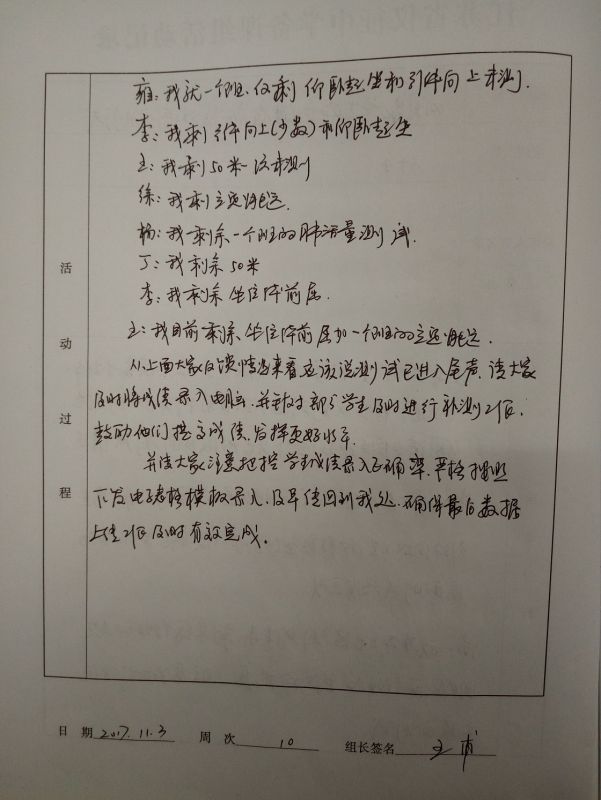 雍:我就一个班.仅剩仰卧起坐和引体向上未测.
李:我剩引体向上(少数)和仰卧起坐
王:我剩50米一次未测
徐:我剩立定跳远.
杨:我剩余一个班的肺活量测试.
丁:我剩余50米
李:我剩余坐位体前屈.
王:我目前剩余坐位体前屈加一个班的立定跳远.
从上面大家反馈情况来看应该说测试已进入尾声.请大家
及时将成绩录入电脑.并针对部分学生及时进行补测工作.
鼓励他们提高成绩.发挥更好水平.
并请大家注意把握学生成绩录入正确率.严格按照
下发电子表格模板录入.及早传回到我处.确保最后数据
上传工作及时有效完成.
活动过程
日期 2017.11.3 周次 10 组长签名 王